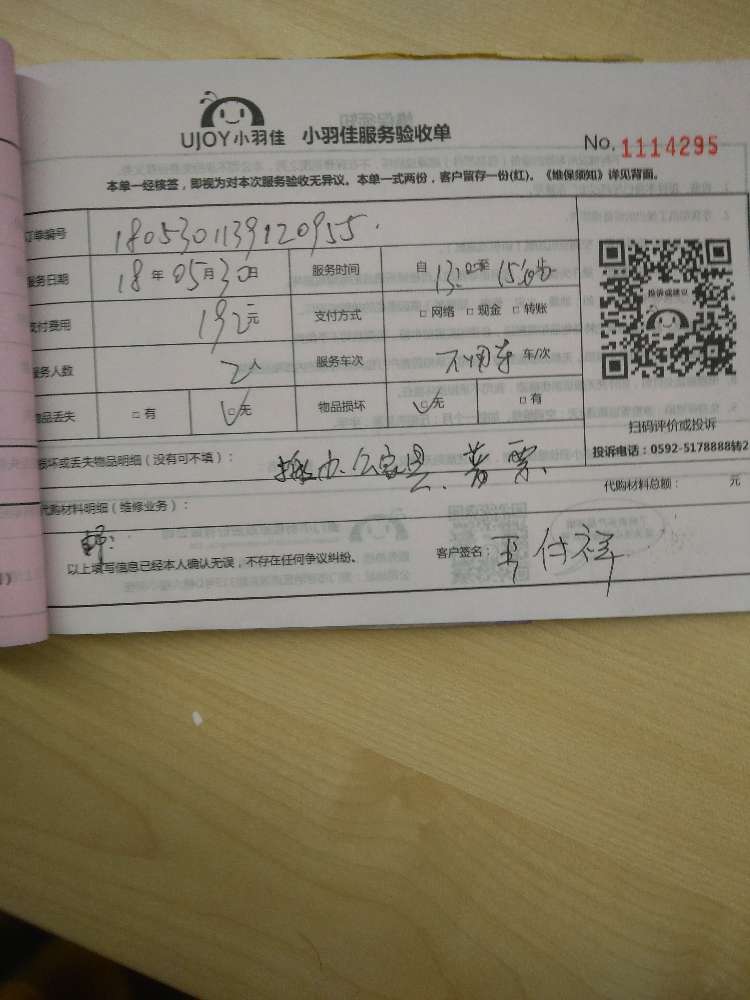 UJOY小羽佳 小羽佳服务验收单 No. 1114295
本单一经核签，即视为对本次服务验收无异议。本单一式两份，客户留存一份(红)。《维保须知》详见背面。
订单编号 1805301139120955
服务日期 18年05月30日 服务时间 自13:00至15:00止
支付费用 192元 支付方式 □网络 □现金 □转账
投诉或建议
服务人数 2人 服务车次 不用车 车/次
物品丢失 □有 ☑无 物品损坏 ☑无 □有
扫码评价或投诉
投诉电话：0592-5178888转2
损坏或丢失物品明细（没有可不填）： 搬办公家具、普票
代购材料明细（维修业务）： 代购材料总额： 元
以上填写信息已经本人确认无误，不存在任何争议纠纷。 客户签名： 付祥